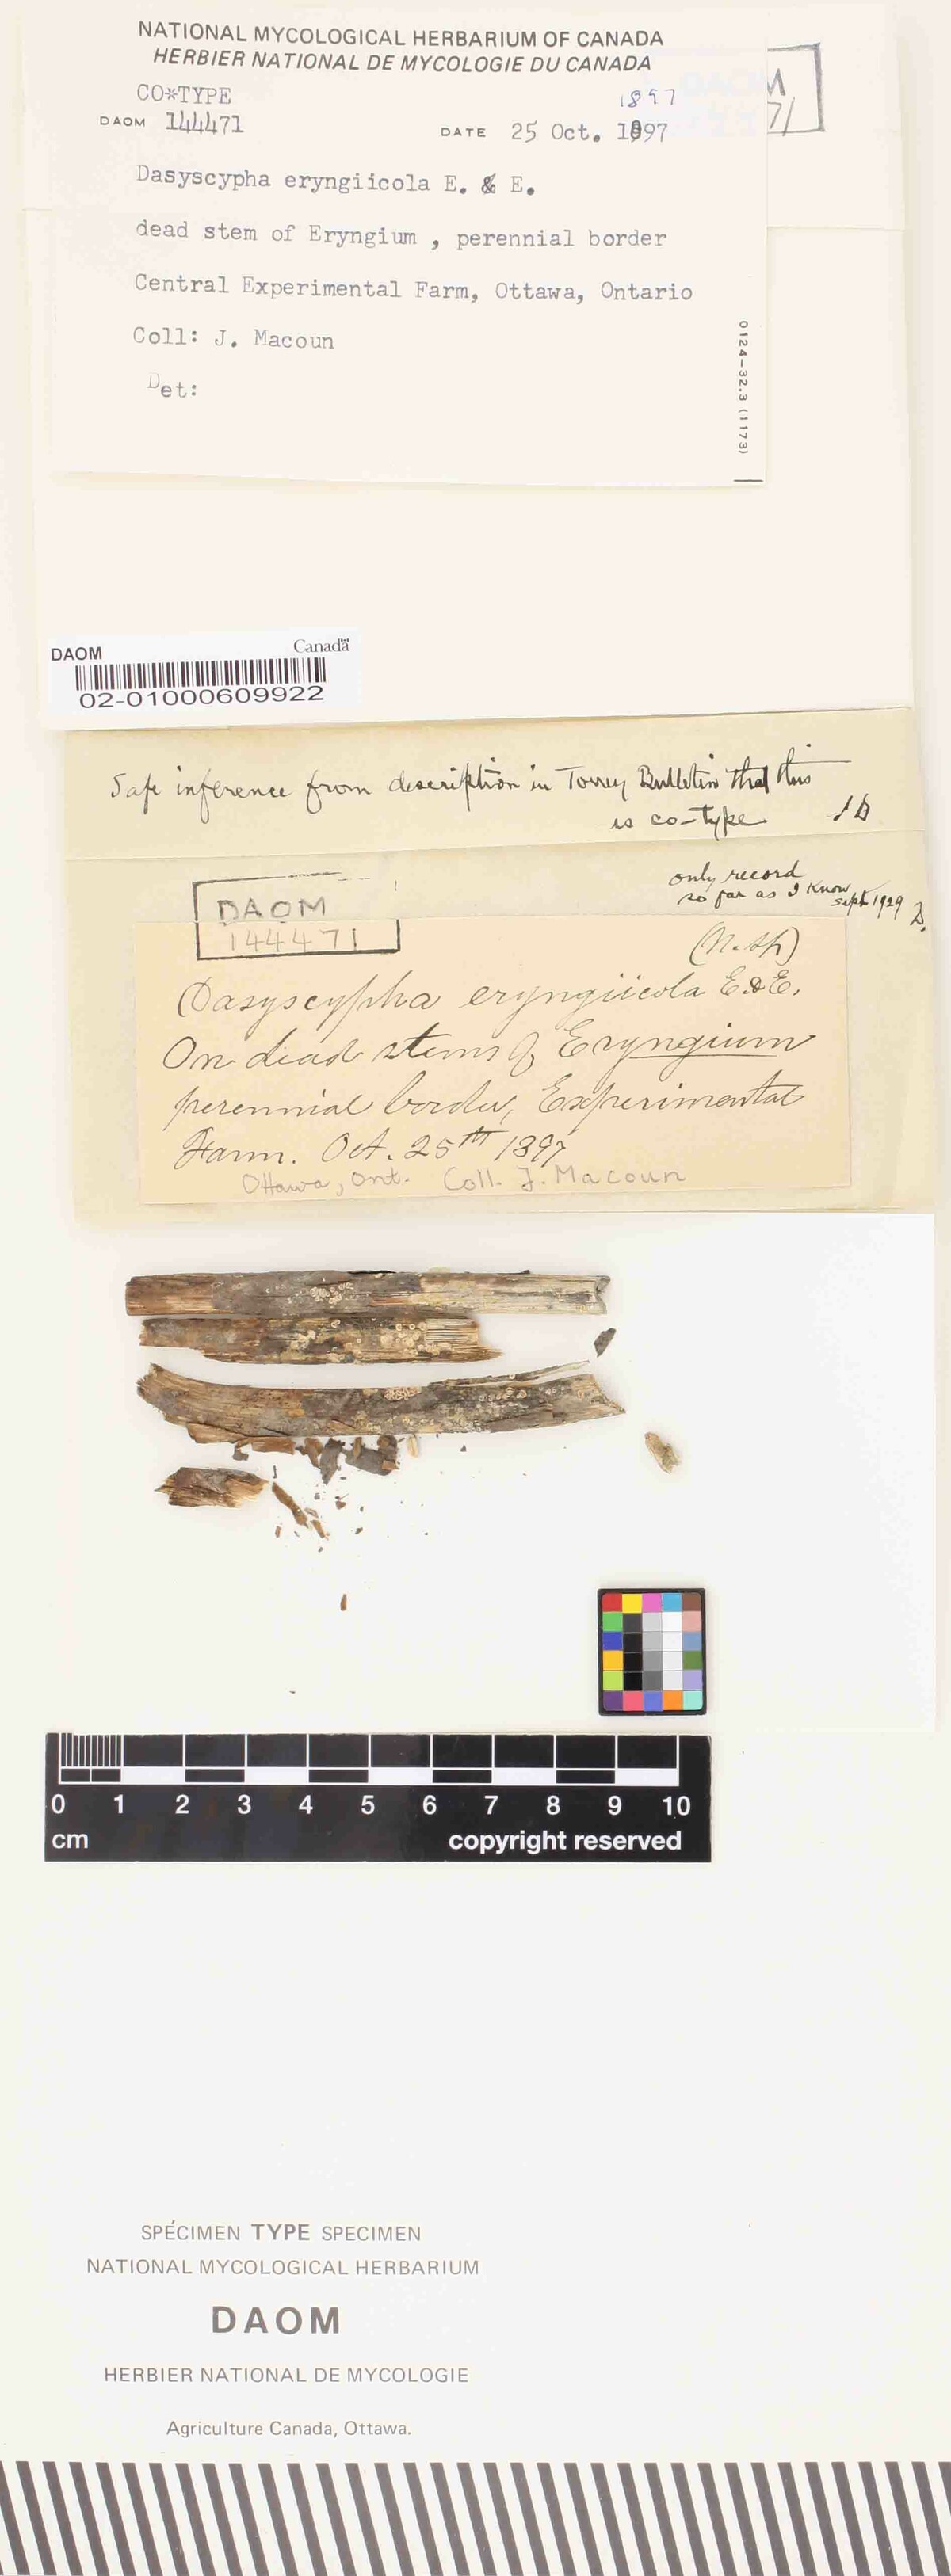 NATIONAL MYCOLOGICAL HERBARIUM OF CANADA
HERBIER NATIONAL DE MYCOLOGIE DU CANADA
CO*TYPE
1897
DAOM 144471
DATE 25 Oct. 1897
M
71
Dasyscypha eryngiicola E. & E.
dead stem of Eryngium , perennial border
Central Experimental Farm, Ottawa, Ontario
Coll: J. Macoun
Det:
0124-32.3 (1173)
DAOM
Canada
02-01000609922
Safe inference from description in Torrey Bulletin that this
is co-type
only record
so far as I know
Sept 1929
DAOM
144471
(N. sp)
Dasyscypha eryngiicola E. & E.
On dead stems of Eryngium
perennial border, Experimental
Farm. Oct. 25th 1897
Ottawa, Ont. Coll. J. Macoun
0 1 2 3 4 5 6 7 8 9 10
cm
copyright reserved
SPÉCIMEN TYPE SPECIMEN
NATIONAL MYCOLOGICAL HERBARIUM
DAOM
HERBIER NATIONAL DE MYCOLOGIE
Agriculture Canada, Ottawa.